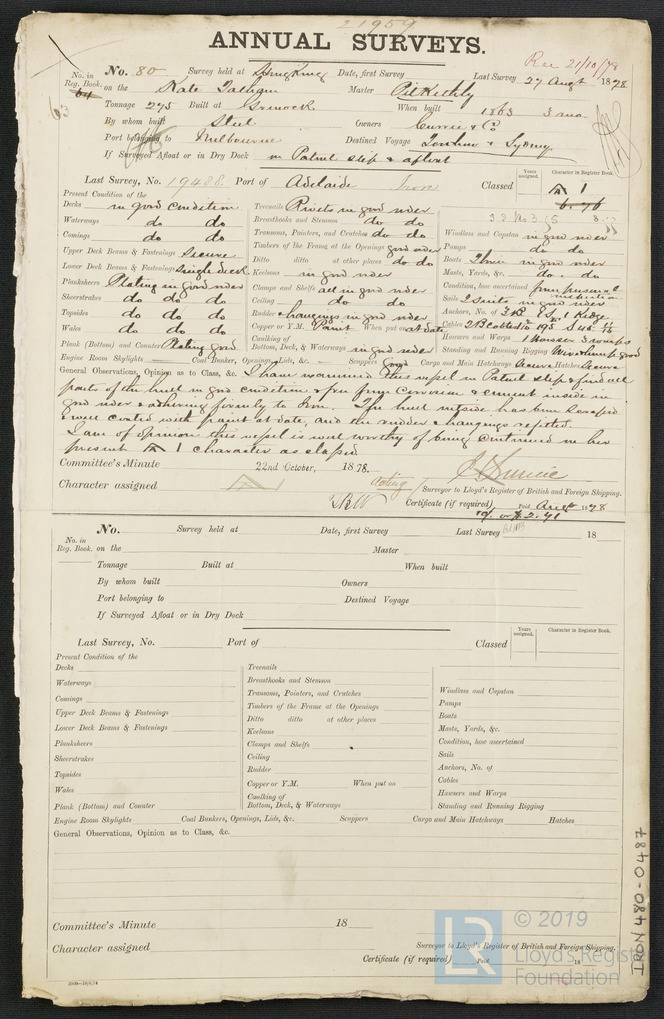 21959
ANNUAL SURVEYS.
Rec 21/10/78
No. in Reg. Book. 64 No. 80 Survey held at Hong Kong Date, first Survey Last Survey 27 Augt 1878
63 on the Kate Tatham Master
Tonnage 275 Built at Greenock When built 1863 3 mo
By whom built Steel Owners Currie & Co
Port belonging to Melbourne Destined Voyage & Sydney
If Surveyed Afloat or in Dry Dock in Patent slip & afloat
Last Survey, No. 19488 Port of Adelaide Iron Classed A 1
Years assigned. Character in Register Book.
6.76
Present Condition of the
Decks in good condition Treenails Rivets in good order
Waterways do do Breasthooks and Stemson do do Windlass and Capstan in good order
Comings do do Transoms, Pointers, and Crutches do do Pumps do do
Upper Deck Beams & Fastenings Secure Timbers of the Frame at the Openings good order Boats Three in good order
Lower Deck Beams & Fastenings Single deck Ditto ditto at other places do do Masts, Yards, &c. do do
Planksheers Plating in good order Keelsons in good order Condition, how ascertained from personal inspection
Sheerstrakes do do do Clamps and Shelfs all in good order Sails 2 suits in good order
Topsides do do do Ceiling do do Anchors, No. of 3 B 1 S 1 Kedge
Wales do do do Rudder & hangings in good order Cables
Copper or Y.M. Paint When put on at date Hawsers and Warps 1 Hawser 3 warps
Plank (Bottom) and Counter Plating good Caulking of Bottom, Deck, & Waterways in good order Standing and Running Rigging good
Engine Room Skylights Coal Bunker, Openings, Lids, &c. Scuppers good Cargo and Main Hatchways Secure Hatches Secure
General Observations, Opinion as to Class, &c. I have examined this vessel in Patent slip & find all
parts of the hull in good condition & free from corrosion & cement inside in
good order & adhering firmly to Iron. The hull outside has been scraped
& well coated with paint at date, and the rudder & hangings refitted.
I am of opinion this vessel is well worthy of being continued in her
present A 1 character as classed
Committee's Minute 22nd October, 1878.
Character assigned A 1
acting Surveyor to Lloyd's Register of British and Foreign Shipping.
Certificate (if required) Paid Augt 1878
No. Survey held at Date, first Survey Last Survey 18
No. in Reg. Book. on the Master
Tonnage Built at When built
By whom built Owners
Port belonging to Destined Voyage
If Surveyed Afloat or in Dry Dock
Last Survey, No. Port of Classed
Years assigned. Character in Register Book.
Present Condition of the
Decks Treenails
Waterways Breasthooks and Stemson
Comings Transoms, Pointers, and Crutches Windlass and Capstan
Upper Deck Beams & Fastenings Timbers of the Frame at the Openings Pumps
Lower Deck Beams & Fastenings Ditto ditto at other places Boats
Planksheers Keelsons Masts, Yards, &c.
Sheerstrakes Clamps and Shelfs Condition, how ascertained
Topsides Ceiling Sails
Wales Rudder Anchors, No. of
Copper or Y.M. When put on Cables
Plank (Bottom) and Counter Caulking of Bottom, Deck, & Waterways Hawsers and Warps
Standing and Running Rigging
Engine Room Skylights Coal Bunkers, Openings, Lids, &c. Scuppers Cargo and Main Hatchways Hatches
General Observations, Opinion as to Class, &c.
Committee's Minute 18
Character assigned Surveyor to Lloyd's Register of British and Foreign Shipping.
Certificate (if required) Paid 18
IRON 480-0487
LR
© 2019
Lloyd's Register
Foundation